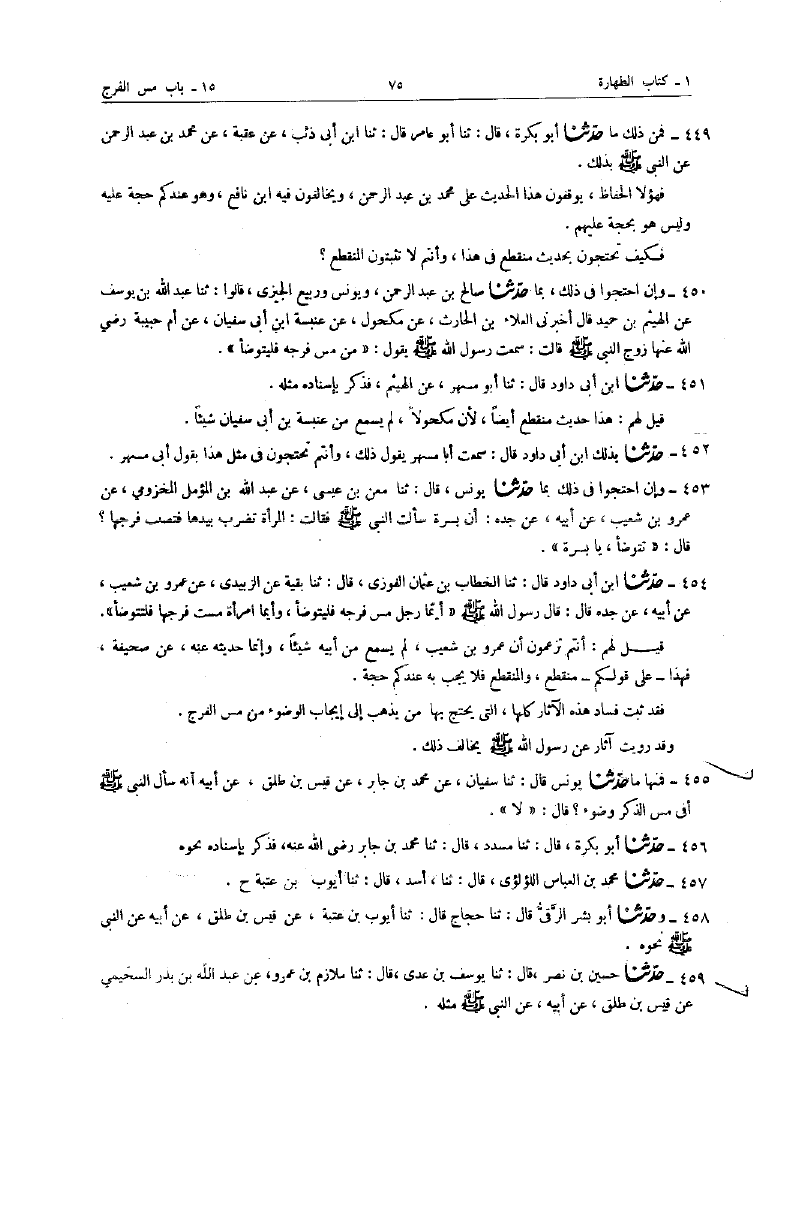 ١ - كتاب الطهارة ٧٥ ١٥ - باب مس الفرج
٤٤٩ - فمن ذلك ما حدثنا أبو بكرة ، قال : ثنا أبو عامر قال : ثنا ابن أبى ذئب ، عن عقبة ، عن محمد بن عبد الرحمن
عن النبى ﷺ بذلك .
فهؤلا الحفاظ ، يوقفون هذا الحديث على محمد بن عبد الرحمن ، ويخالفون فيه ابن نافع ، وهو عندكم حجة عليه
وليس هو بحجة عليهم .
فكيف تحتجون بحديث منقطع فى هذا ، وأنتم لا تثبتون المنقطع ؟
٤٥٠ - وإن احتجوا فى ذلك ، بما حدثنا صالح بن عبد الرحمن ، ويونس وربيع الجيزى ، قالوا : ثنا عبد الله بن يوسف
عن الهيثم بن حميد قال أخبرنى العلاء بن الحارث ، عن مكحول ، عن عنبسة ابن أبى سفيان ، عن أم حبيبة رضي
الله عنها زوج النبى ﷺ قالت : سمعت رسول الله ﷺ يقول : « من مس فرجه فليتوضأ » .
٤٥١ - حدثنا ابن أبى داود قال : ثنا أبو مسهر ، عن الهيثم ، فذكر بإسناده مثله .
قيل لهم : هذا حديث منقطع أيضاً ، لأن مكحولاً ، لم يسمع من عنبسة بن أبى سفيان شيئاً .
٤٥٢ - حدثنا بذلك ابن أبى داود قال : سمعت أبا مسهر يقول ذلك ، وأنتم تحتجون فى مثل هذا بقول أبى مسهر .
٤٥٣ - وإن احتجوا فى ذلك بما حدثنا يونس ، قال : ثنا معن بن عيسى ، عن عبد الله بن المؤمل المخزومي ، عن
عمرو بن شعيب ، عن أبيه ، عن جده : أن بسرة سألت النبي ﷺ فقالت : المرأة تضرب بيدها فتصب فرجها ؟
قال : « تتوضأ ، يا بسرة » .
٤٥٤ - حدثنا ابن أبى داود قال : ثنا الخطاب بن عثمان الفوزى ، قال : ثنا بقية عن الزبيدى ، عن عمرو بن شعيب ،
عن أبيه ، عن جده قال : قال رسول الله ﷺ « أيما رجل مس فرجه فليتوضأ ، وأيما امرأة مست فرجها فلتتوضأ».
قيـــل لهم : أنتم تزعمون أن عمرو بن شعيب ، لم يسمع من أبيه شيئاً ، وإنما حديثه عنه ، عن صحيفة ،
فهذا - على قولكم - منقطع ، والمنقطع فلا يجب به عندكم حجة .
فقد ثبت فساد هذه الآثار كلها ، التى يحتج بها من يذهب إلى إيجاب الوضوء من مس الفرج .
وقد رويت آثار عن رسول الله ﷺ يخالف ذلك .
٤٥٥ - فمنها ما حدثنا يونس قال : ثنا سفيان ، عن محمد بن جابر ، عن قيس بن طلق ، عن أبيه أنه سأل النبى ﷺ
أفى مس الذكر وضوء ؟ قال : « لا » .
٤٥٦ - حدثنا أبو بكرة ، قال : ثنا مسدد ، قال : ثنا محمد بن جابر رضى الله عنه، فذكر بإسناده نحوه
٤٥٧ - حدثنا محمد بن العباس اللؤلؤى ، قال : ثنا ، أسد ، قال : ثنا أيوب بن عتبة ح .
٤٥٨ - وحدثنا أبو بشر الرقىُّ قال : ثنا حجاج قال : ثنا أيوب بن عتبة ، عن قيس بن طلق ، عن أبيه عن النبى
ﷺ نحوه .
٤٥٩ - حدثنا حسين بن نصر ،قال : ثنا يوسف بن عدى ،قال : ثنا ملازم بن عمرو، عن عبد الله بن بدر السحيمي
عن قيس بن طلق ، عن أبيه ، عن النبى ﷺ مثله .